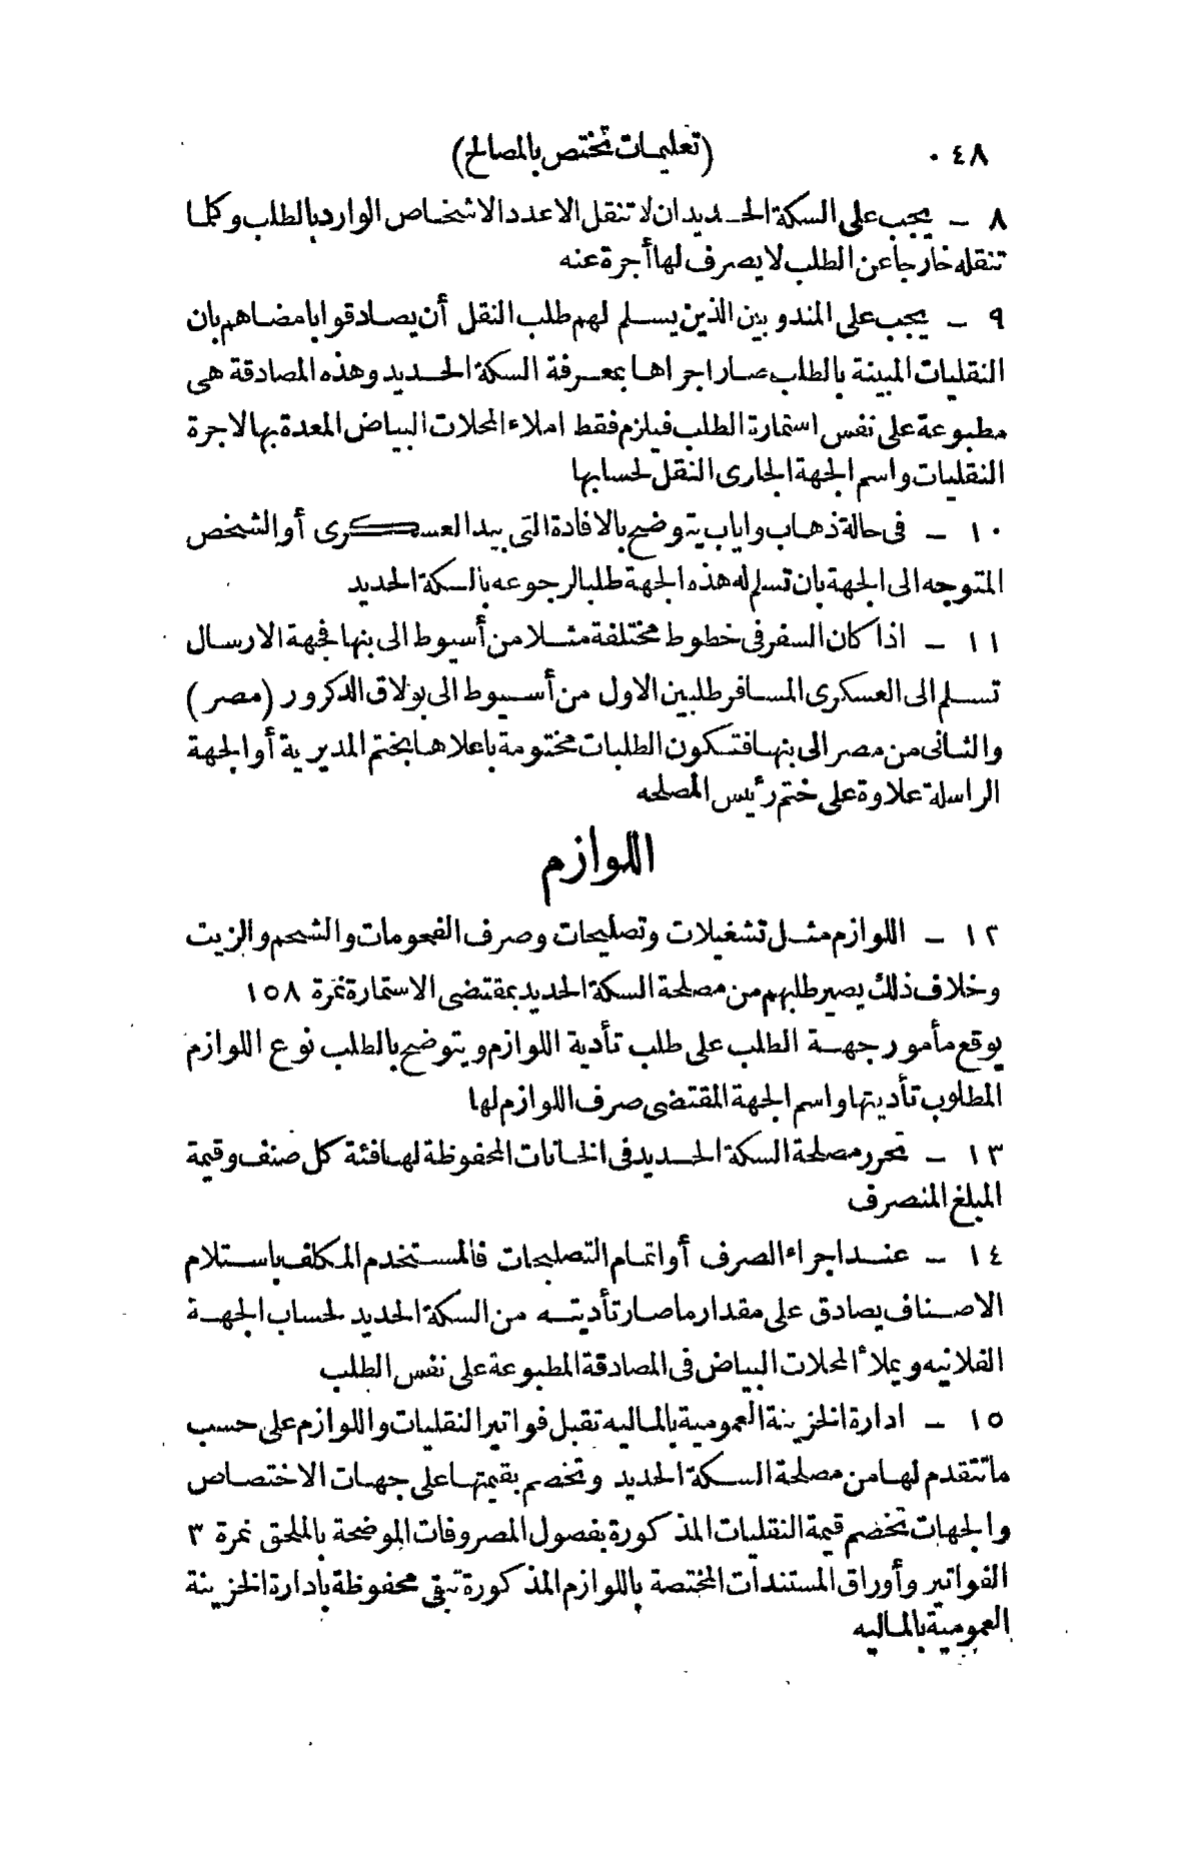 ٠٤٨ (تعليمات تختص بالمصالح)
٨ - يجب على السكة الحديد ان لا تنقل الا عدد الاشخاص الوارد بالطلب وكلما
تنقله خارجا عن الطلب لا يصرف لها أجرة عنه
٩ - يجب على المندوبين الذين يسلم لهم طلب النقل أن يصادقوا بامضاهم بان
النقليات المبينة بالطلب صار اجراها بمعرفة السكة الحديد وهذه المصادقة هى
مطبوعة على نفس استمارة الطلب فيلزم فقط املاء المحلات البياض المعدة بها لاجرة
النقليات واسم الجهة الجارى النقل لحسابها
١٠ - فى حالة ذهاب واياب يتوضح بالافادة التى بيد العسكرى أو الشخص
المتوجه الى الجهة بان تسلم له هذه الجهة طلبا لرجوعه بالسكة الحديد
١١ - اذا كان السفر فى خطوط مختلفة مثلا من أسيوط الى بنها فجهة الارسال
تسلم الى العسكرى المسافر طلبين الاول من أسيوط الى بولاق الدكرور (مصر)
والثانى من مصر الى بنها فتكون الطلبات مختومة باعلاها بختم المديرية أو الجهة
الراسلة علاوة على ختم رئيس المصلحه
اللوازم
١٢ - اللوازم مثل تشغيلات وتصليحات وصرف الفحومات والشحم والزيت
وخلاف ذلك يصير طلبهم من مصلحة السكة الحديد بمقتضى الاستمارة نمرة ١٥٨
يوقع مأمور جهة الطلب على طلب تأدية اللوازم ويتوضح بالطلب نوع اللوازم
المطلوب تأديتها واسم الجهة المقتضى صرف اللوازم لها
١٣ - تحرر مصلحة السكة الحديد فى الخانات المحفوظة لها فئة كل صنف وقيمة
المبلغ المنصرف
١٤ - عند اجراء الصرف أو اتمام التصليحات فالمستخدم المكلف باستلام
الاصناف يصادق على مقدار ما صار تأديته من السكة الحديد لحساب الجهة
الفلانيه ويملأ المحلات البياض فى المصادقة المطبوعة على نفس الطلب
١٥ - ادارة الخزينة العمومية بالماليه تقبل فواتير النقليات واللوازم على حسب
ما تتقدم لها من مصلحة السكة الحديد وتخصم بقيمتها على جهات الاختصاص
والجهات تخصم قيمة النقليات المذكورة بفصول المصروفات الموضحة بالملحق نمرة ٣
الفواتير وأوراق المستندات المختصة باللوازم المذكورة تبقى محفوظة بادارة الخزينة
العمومية بالماليه